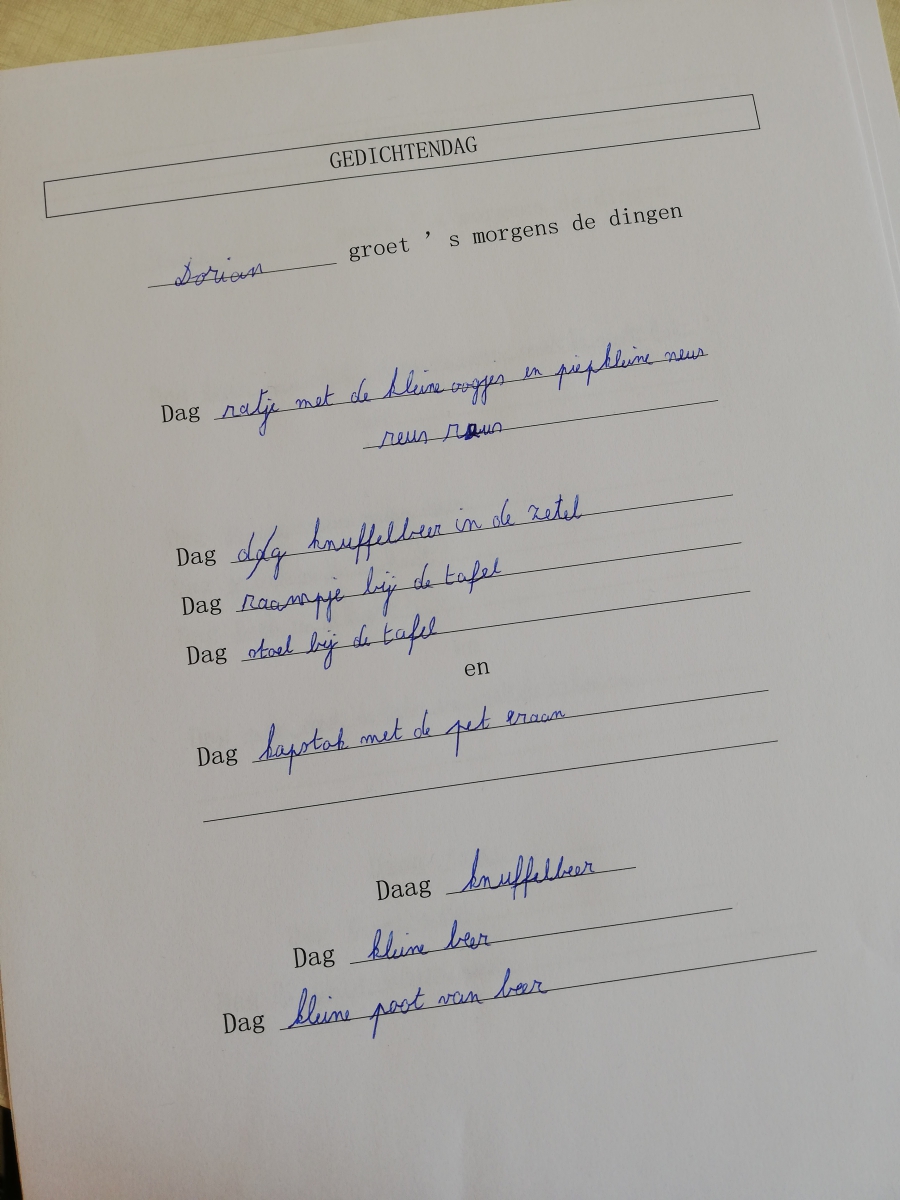 GEDICHTENDAG
Dorian groet 's morgens de dingen
Dag ratje met de kleine oogjes en piepkleine neus
neus
Dag knuffelbeer in de zetel
Dag raampje bij de tafel
Dag stoel bij de tafel
en
Dag kapstok met de pet eraan
Daag knuffelbeer
Dag kleine beer
Dag kleine poot van beer